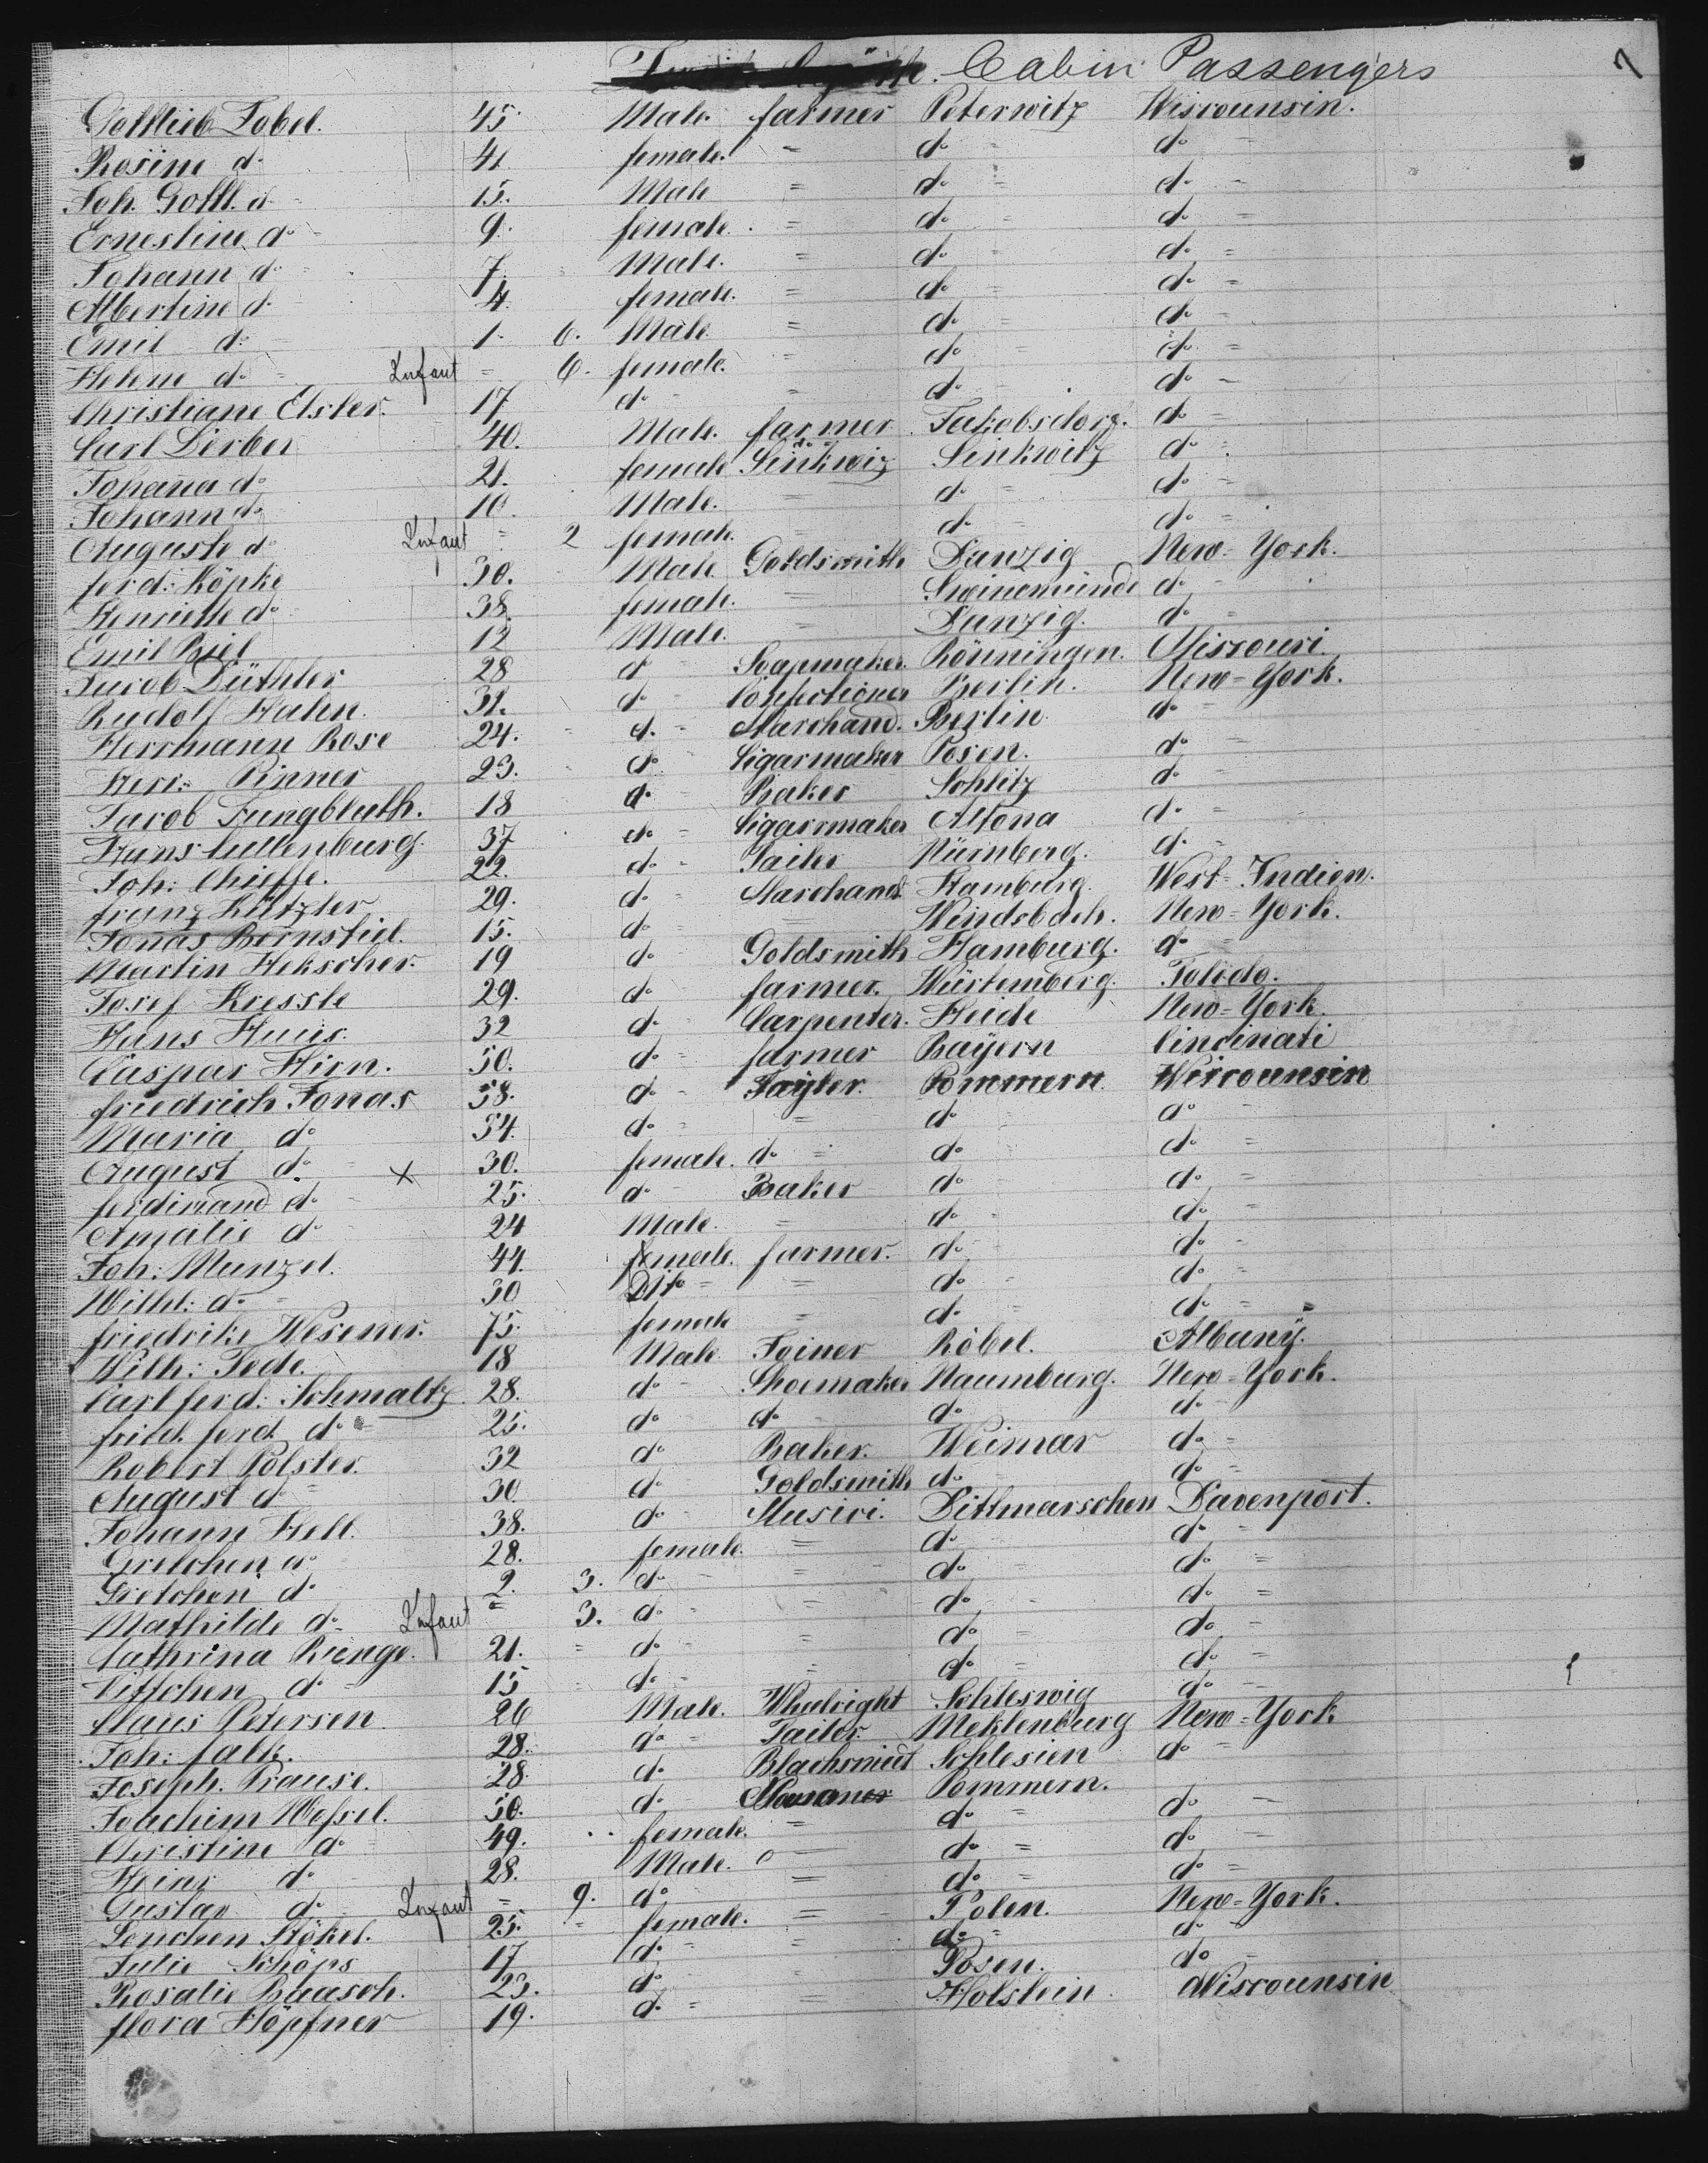 Cabin Passengers 7
Gottlieb Tobel. 45. Male. farmer Peterwitz Wiscounsin.
Rosine do 41 female. = do = do =
Joh. Gottl. do 15. Male = do = do =
Ernestine do 9. female. = do = do =
Johann do 7. Male. = do = do =
Albertine do 4. female. = do = do =
Emil do 1. 6. Male = do = do =
Helene do = Infant = 6. female. = do = do =
Christiane Elster. 17 do = = do do =
Carl Dierber 40. Male. farmer Jakobsdorf. do =
Johana do 21. female Sinkwiz Sinkwitz do =
Johann do 10. Male. = do = do =
Auguste do Infant = 2 female. = do = do =
ferd: Köpke 30. Male. Goldsmith Danzig New-York.
Henriette do 38. female. = Swinemünde do =
Emil Biel 12 Male. = Danzig. do =
Jacob Düthler 28 do Soapmaker. Rönningen. Missouri.
Rudolf Hahn. 32. do = Confectioner Berlin. New-York.
Herrmann Rose 24. do = Marchand. Berlin. do =
Herr: Pinner 23. do Cigarmaker Posen. do =
Jacob Jungbluth. 18 do = Baker Schlitz do =
Hans Cullenburg. 37 do = Cigarrmaker Altona do =
Joh: Chieffe. 22. do = Tailer Nürnberg. do =
franz Kützler 29. do = Marchand Hamburg. West-Indien.
Jonas Bernstiel. 15. do = = Windsbach. New-York.
Martin Hekscher. 19 do = Goldsmith Hamburg. do =
Josef Kressle 29. do = farmer. Würtemberg. Toledo.
Hans Huus. 32 do = Carpenter. Heide New-York.
Caspar Hirn. 50. do = farmer Bayern Cincinati
friedrich Jonas 58. do = Tayler. Pommern Wiscounsin
Maria do 54. do = = do do =
August do = x 30. female. do = do do =
ferdinand do 25. do = Baker do = do =
Amalie do 24 Male. = do = do =
Joh: Munzel. 44. female. farmer. do = do =
Wilhl: do = 30 Dito = = do = do =
friedrike Wesener. 75. female = do = do =
Wilh: Tede. 18 Male Joiner Röbel. Albany.
Carl ferd: Schmaltz 28. do = Shoemaker Naumburg. New-York.
fried. ferd. do = 25. do do = do do =
Robert Polster. 32 do Baker. Weimar do =
August do = 30 do Goldsmith do = do =
Johann Hell. 38. do = Musici. Dittmarschen Davenport.
Gretchen do 28. female. = do do =
Gretchen do 2. 3. do = = do do =
Mathilde do = Infant = 3. do = = do = do =
Cathrina Runge. 21. = do = = do = do =
Vittchen do = 15 do = = do = do =
Claus Petersen 26 Male. Whelright Schleswig do =
Joh: falk. 28. do = Tailor. Meklenburg New-York
Joseph. Prause. 28 do Blacksmid Schlesien do =
Joachim Wessel. 50. do = Pommern.
Christine do = 49. female. = do = do =
Heinr do = 28. Male. do = do =
Gustav do = Infant = 9. do = do = do =
Lenchen Stökel. 25. = female. = Polen. New-York.
Julie Schöps 17 do = = do = do
Rosalie Baasch. 23. do = Posen. do =
flora Höpfner 19. do = = Holstein. Wiscounsin